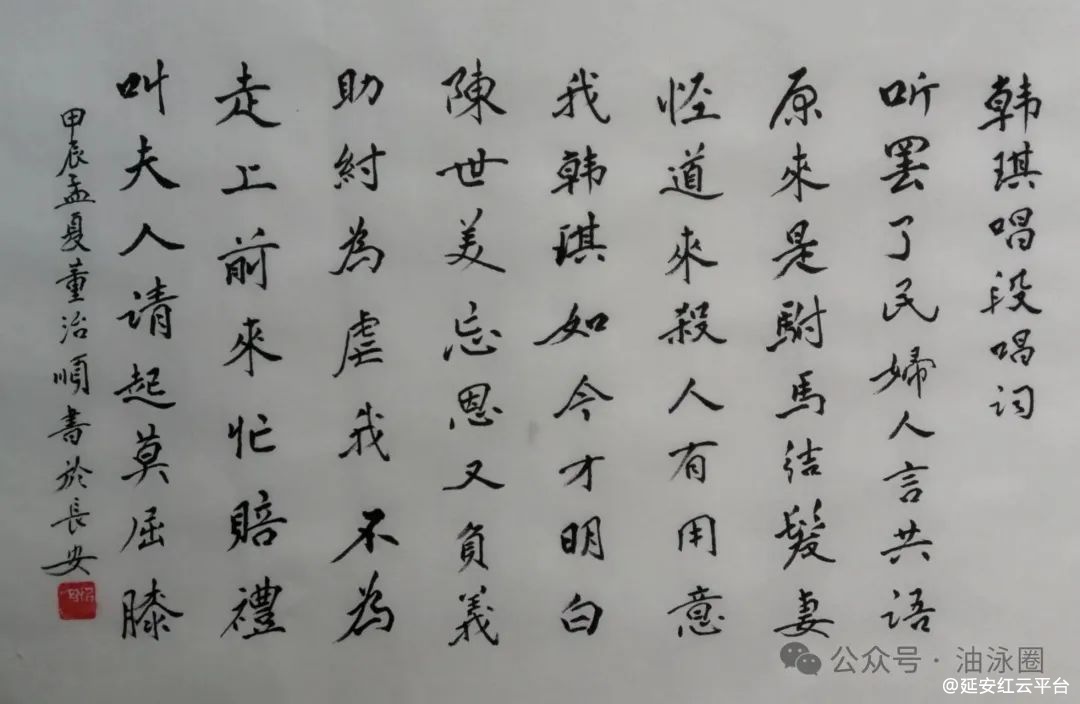 韩琪唱段唱词
听罢了民婦人言共语
原來是駙馬结髮妻
怪道來殺人有用意
我韩琪如今才明白
陳世美忘恩又負義
助紂為虐我不為
走上前來忙赔禮
叫夫人请起莫屈膝
甲辰孟夏董治順書於長安
公众号·油泳圈
@延安红云平台